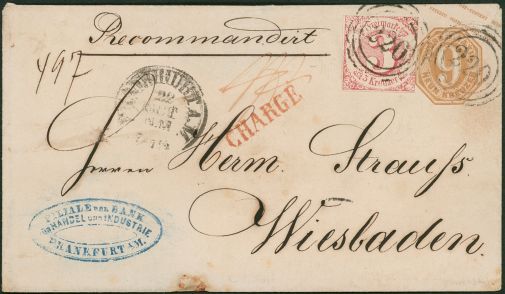 Recommandirt
497
FRANKFURT A.M.
22
OCT
N.M.
CHARGE
Freimarke
3 Kreuzer
220
220
9
NEUN KREUZER
Herren Herm. Strauss.
Wiesbaden.
FILIALE DER BANK
FÜR HANDEL UND INDUSTRIE
FRANKFURT A/M.